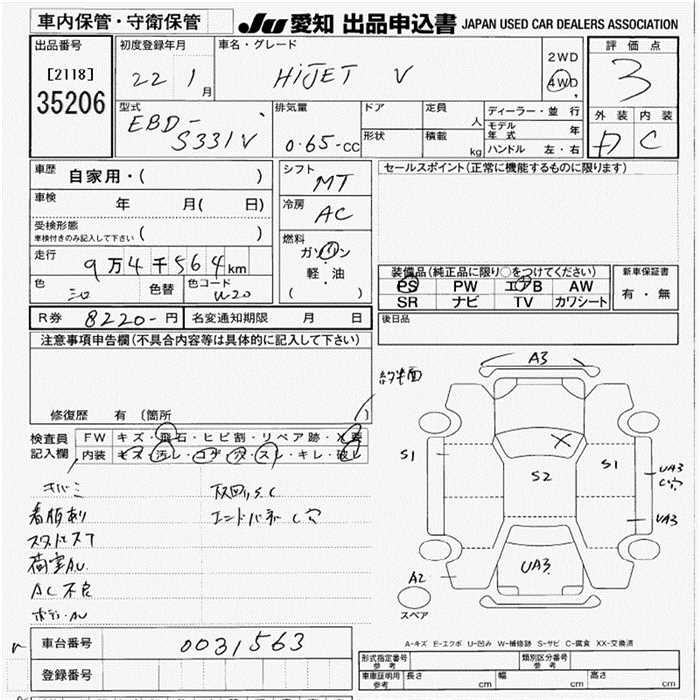 車内保管・守衛保管
JU 愛知 出品申込書 JAPAN USED CAR DEALERS ASSOCIATION
出品番号
[2118]
35206
初度登録年月
22 1月
車名・グレード
HiJET V
2WD
4WD
評価点
3
外装 内装
C
型式
EBD-
S331V
排気量
0.65-cc
ドア
形状
定員 人
積載 kg
ディーラー・並行
モデル年式 年
ハンドル 左・右
車歴 自家用・( )
車検 年 月( 日)
受検形態
車検付きのみ記入して下さい ( )
走行 9万4千564km
色 色替 色コード W20
シフト
MT
冷房
AC
燃料
ガソリン
・
軽・油
( )
セールスポイント(正常に機能するものに限ります)
装備品(純正品に限り○をつけてください)
PS PW エアB AW
SR ナビ TV カワシート
新車保証書
有・無
後日品
R券 8220-円 名変通知期限 月 日
注意事項申告欄(不具合内容等は具体的に記入して下さい)
修復歴 有 (箇所 )
検査員記入欄
FW キズ・飛石・ヒビ割・リペア跡・X要
内装 キズ・汚レ・コゲ・穴・スレ・キレ・破レ
キバミ
看板あり
荷室AU.
AC不良
ボデーAU
エンドパネ C穴
A3
S1
S2
S1
UA3
C穴
UA3
UA3
A2
スペア
A-キズ E-エクボ U-凹み W-補修跡 S-サビ C-腐食 XX-交換済
車台番号 0031563
登録番号
形式指定番号 参考
類別区分番号 参考
車庫証明用 参考 長さ cm 幅 cm 高さ cm